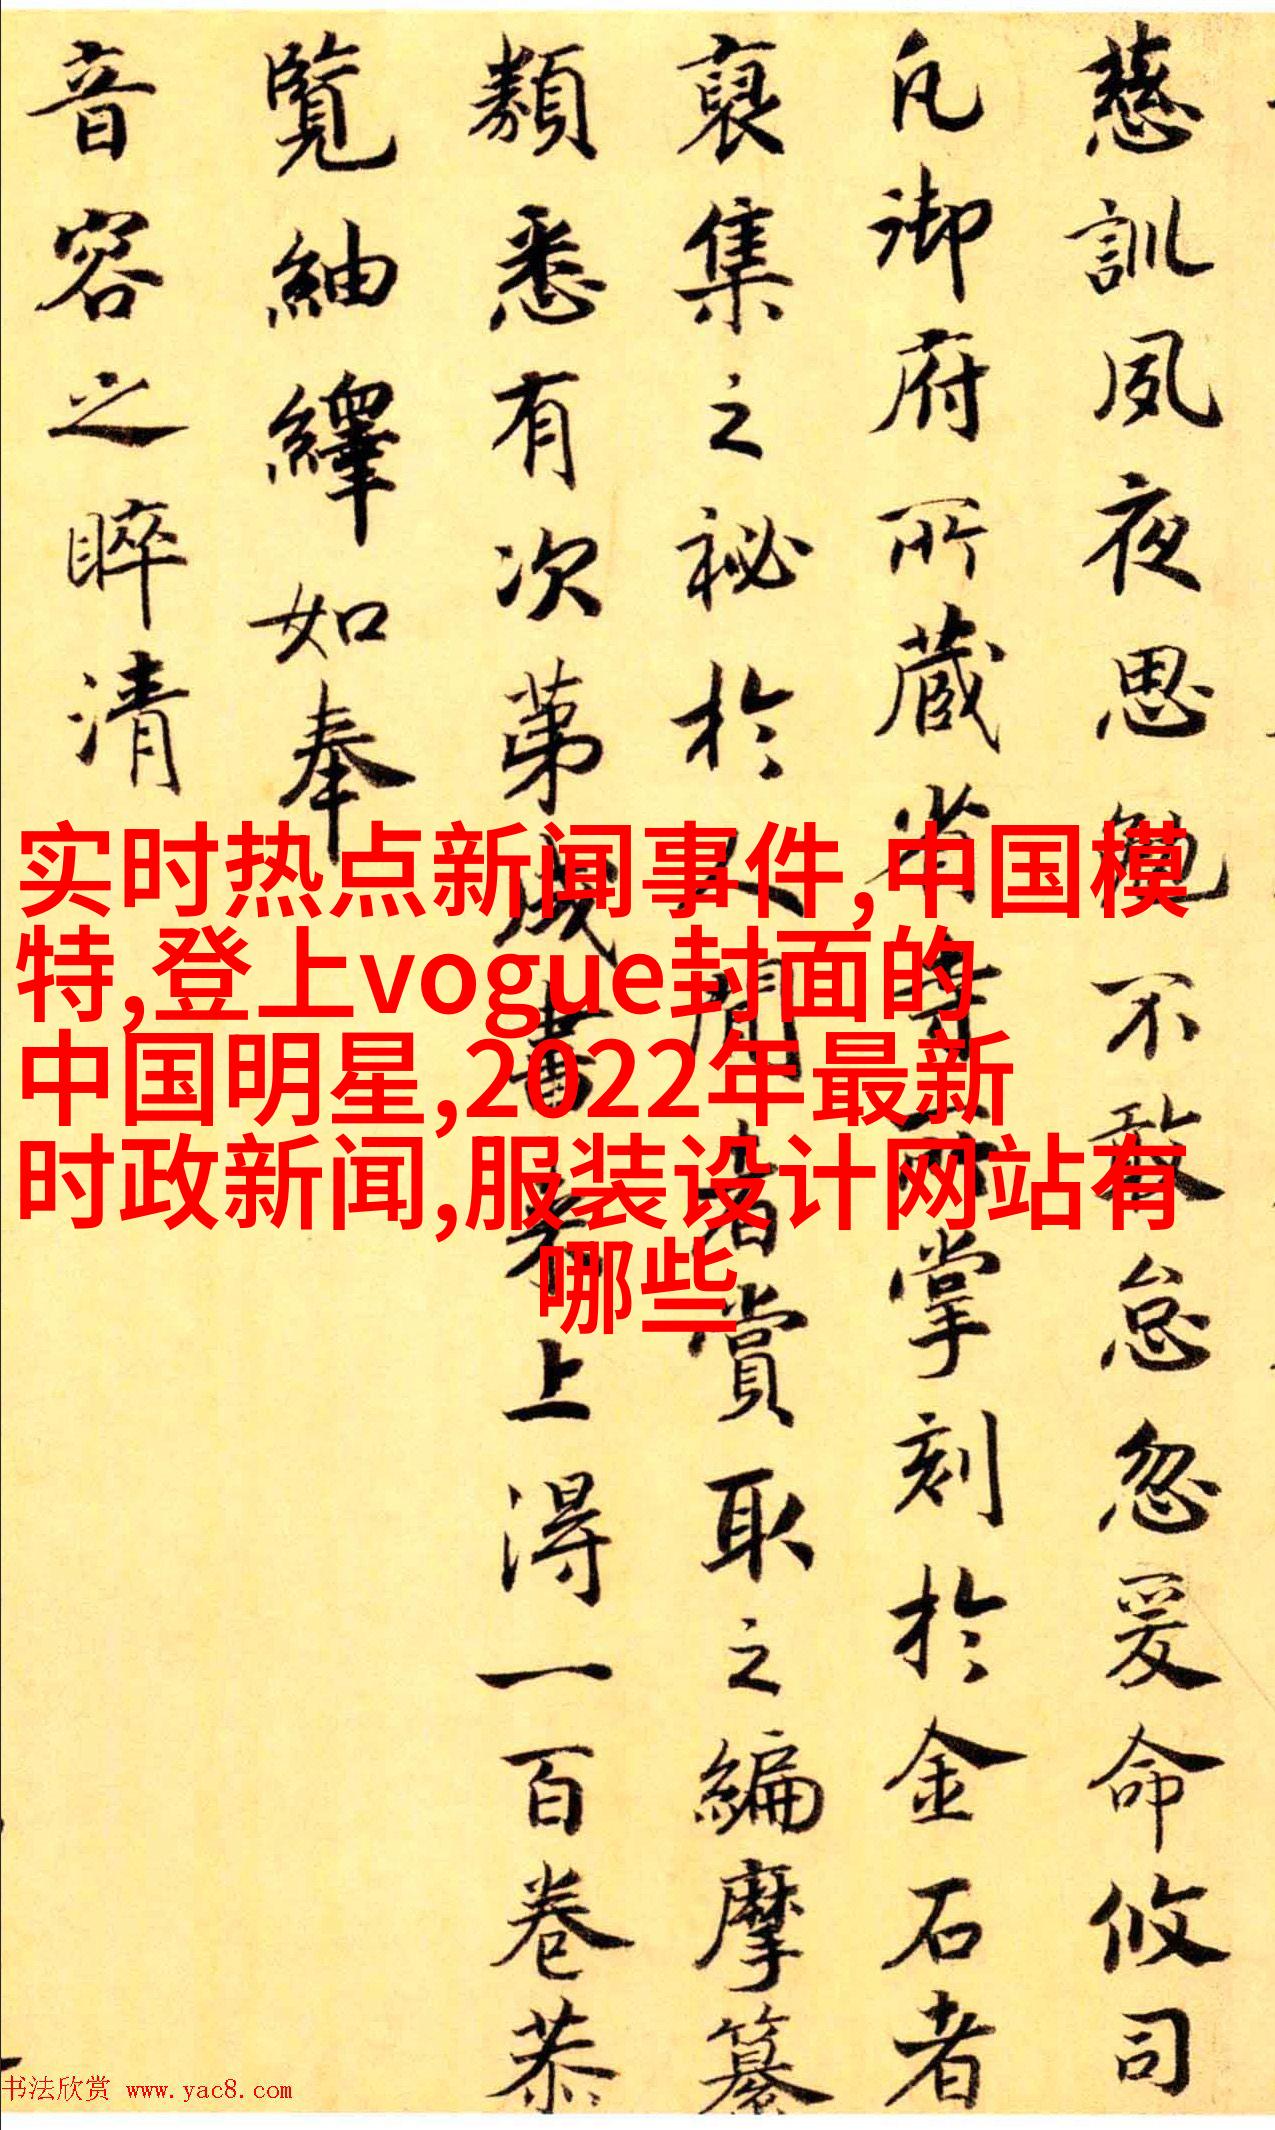 慈訓夙夜思勉不敢怠忽爰命攸司
凡御府所藏省寺所掌刻於金石者
裒集之祕於人間者賞取之編摩纂
類悉有次第成書来上得一百卷恭
覽紬繹如奉
音容之睟清
实时热点新闻事件,中国模
特,登上vogue封面的
中国明星,2022年最新
时政新闻,服装设计网站有
哪些
书法欣赏 www.yac8.com